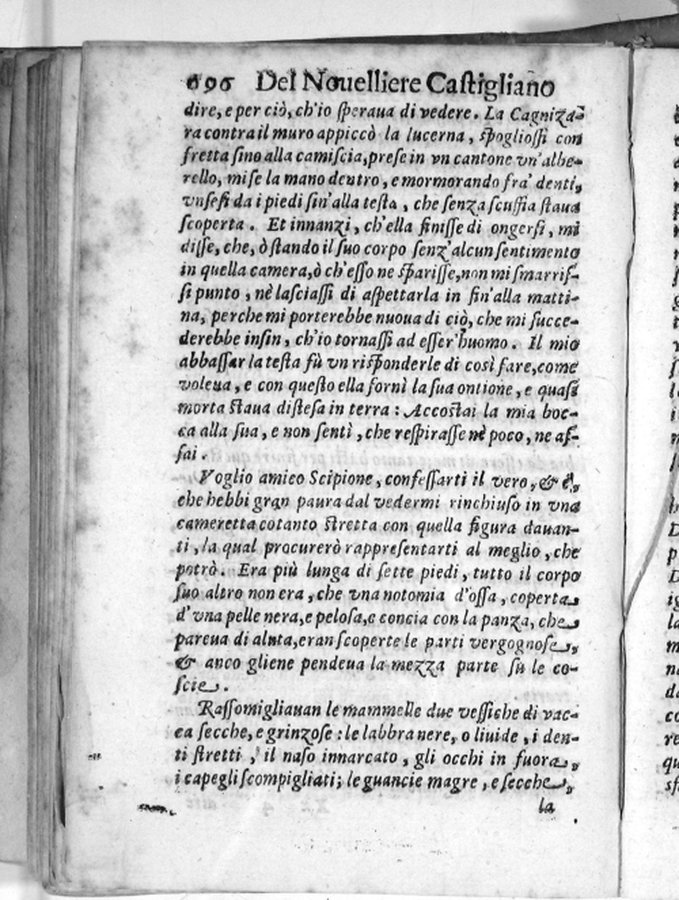 696 Del Nouelliere Castigliano
dire, e per ciò, ch'io ſperaua di vedere. La Cagniza-
ra contra il muro appiccò la lucerna, ſpoglioſſi con
fretta ſino alla camiſcia, preſe in vn cantone vn'albe-
rello, miſe la mano dentro, e mormorando fra' denti,
vnſeſi da i piedi ſin'alla teſta, che ſenza ſcuffia ſtaua
ſcoperta. Et innanzi, ch'ella finiſſe di ongerſi, mi
diſſe, che, ò ſtando il ſuo corpo ſenz'alcun ſentimento
in quella camera, ò ch'eſſo ne ſpariſſe, non mi ſmarriſ-
ſi punto, nè laſciaſſi di aſpettarla in fin'alla matti-
na, perche mi porterebbe nuoua di ciò, che mi ſucce-
derebbe inſin, ch'io tornaſſi ad eſſer'huomo. Il mio
abbaſſar la teſta fù vn riſponderle di così fare, come
voleua, e con queſto ella fornì la ſua ontione, e quaſi
morta ſtaua diſteſa in terra: Accoſtai la mia boc-
ca alla ſua, e non ſentì, che reſpiraſſe nè poco, ne aſ-
ſai.
Voglio amico Scipione, confeſſarti il vero, & è,
che hebbi gran paura dal vedermi rinchiuſo in vna
cameretta cotanto ſtretta con quella figura dauan-
ti, la qual procurerò rappreſentarti al meglio, che
potrò. Era più lunga di ſette piedi, tutto il corpo
ſuo altro non era, che vna notomia d'oſſa, coperta
d'vna pelle nera, e peloſa, e concia con la panza, che
pareua di aluta, eran ſcoperte le parti vergognoſe,
& anco gliene pendeua la mezza parte sù le co-
ſcie.
Raſſomigliauan le mammelle due veſſiche di vac-
ca ſecche, e grinzoſe: le labbra nere, o liuide, i den-
ti ſtretti, il naſo innarcato, gli occhi in fuora,
i capegli ſcompigliati; le guancie magre, e ſecche,
la